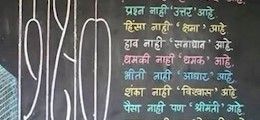 प्रश्न नाही 'उत्तर' आहे.
हिंसा नाही 'क्षमा' आहे
हाव नाही 'समाधान' आहे.
धमकी नाही 'धमक' आहे.
भीती नाही 'आधार' आहे.
शंका नाही 'विश्वास' आहे
पैसा नाही पण 'श्रीमंती' आहे.